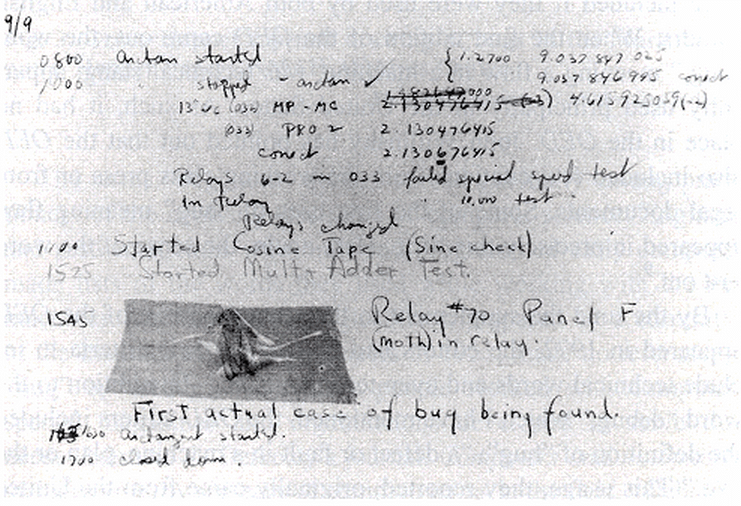 9/9
0800 Antan started { 1.2700 9.037 847 025
1000 " stopped - antan ✓ 9.037 846 995 correct
13"uc (032) MP - MC 2.130476415 (-3) 4.615925059(-2)
(033) PRO 2 2.130476415
correct 2.130676415
Relays 6-2 in 033 failed special speed test
in Relay " 10,000 test
Relays changed
1100 Started Cosine Tape (Sine check)
1525 Started Mult + Adder Test.
1545 Relay #70 Panel F
(moth) in relay.
First actual case of bug being found.
1630 antangent started.
1700 closed down.